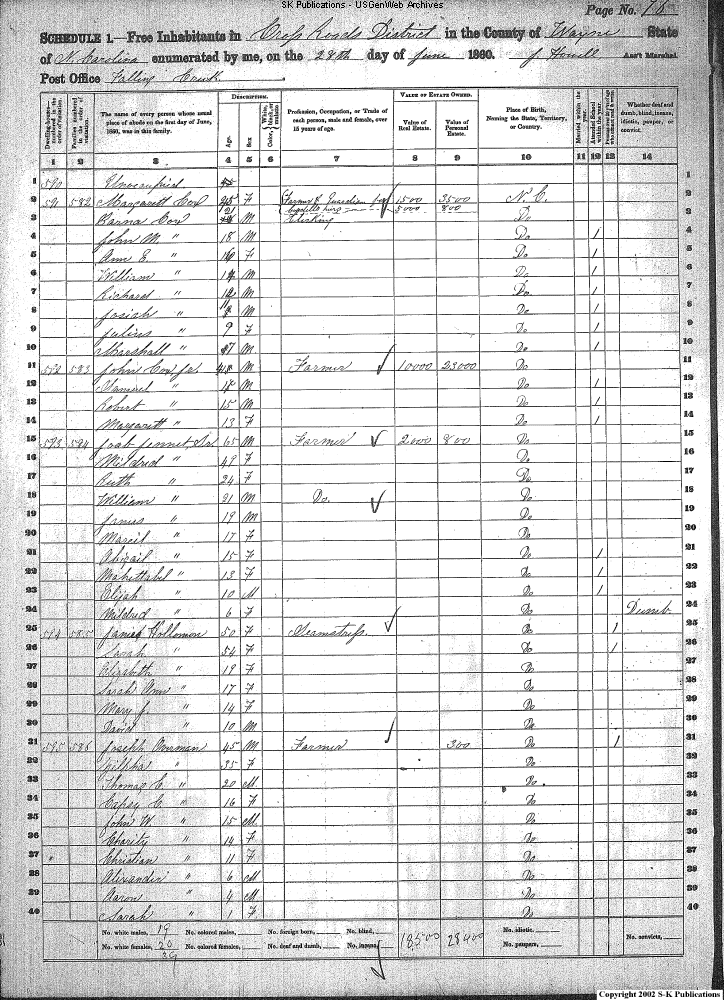 SK Publications - USGenWeb Archives
Page No. 78
SCHEDULE 1.—Free Inhabitants in Cross Roads District in the County of Wayne State
of N. Carolina enumerated by me, on the 28th day of June 1860. J. Howell Ass't Marshal.
Post Office Falling Creek
Dwelling-houses numbered in the order of visitation.
Families numbered in the order of visitation.
The name of every person whose usual place of abode on the first day of June, 1860, was in this family.
DESCRIPTION.
Age.
Sex
Color, White, black, or mulatto
Profession, Occupation, or Trade of each person, male and female, over 15 years of age.
VALUE OF ESTATE OWNED.
Value of Real Estate.
Value of Personal Estate.
Place of Birth, Naming the State, Territory, or Country.
Married within the year.
Attended School within the year.
Whether deaf and dumb, blind, insane, idiotic, pauper, or convict.
1 2 3 4 5 6 7 8 9 10 11 12 13 14
1 590 Unoccupied 1
2 591 582 Margarett Cox F 1500 3500 N C. 2
3 Cox 21 M Clerking 5000 800 Do 3
4 John M. " 18 M Do / 4
5 Ann E. " 16 F Do / 5
6 William " 14 M Do / 6
7 Richard " 12 M Do / 7
8 Josiah " 11 M Do / 8
9 Julius " 9 F Do / 9
10 Marshall " 7 M Do / 10
11 592 583 John Cox Jr. M Farmer 10000 23000 Do 11
12 Samuel " 18 M Do / 12
13 Robert " 15 M Do / 13
14 Margarett " 13 F Do / 14
15 593 584 65 M Farmer 2000 800 Do 15
16 Mildred " 49 F Do 16
17 Ruth " 24 F Do 17
18 William " 21 M Do Do 18
19 James " 19 M Do 19
20 " 17 F Do 20
21 Abigail " 15 F Do / 21
22 Mahettabel " 13 F Do / 22
23 Elijah " 10 M Do / 23
24 Mildred " 6 F Do Dumb 24
25 594 585 Hollomon 50 F Seamstress Do / 25
26 Sarah " 54 F Do / 26
27 Elizabeth " 19 F Do 27
28 Sarah Ann " 17 F Do 28
29 Mary J. " 14 F Do 29
30 David " 10 M Do 30
31 595 586 Joseph Overman 45 M Farmer 300 Do / 31
32 Zilpha " 35 F Do 32
33 Thomas C. " 20 M Do 33
34 C " 16 F Do 34
35 John W. " 15 M Do 35
36 Charity " 14 F Do 36
37 " Christian " 11 F Do 37
38 Alexander " 6 M Do 38
39 Aaron " 4 M Do 39
40 Sarah " 1 F Do 40
No. white males, 19 No. colored males, No. foreign born, No. blind, 18500 28400 No. idiotic,
No. white females, 20 No. colored females, No. deaf and dumb, No. insane, No. paupers, No. convicts,
39
Copyright 2002 S-K Publications